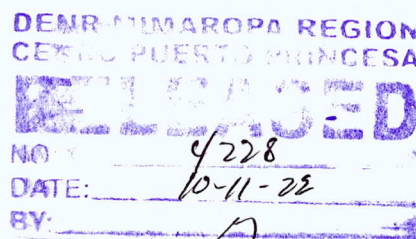 DENR-MIMAROPA REGION
CENRO PUERTO PRINCESA
RELEASED
NO: 4228
DATE: 10-11-22
BY: